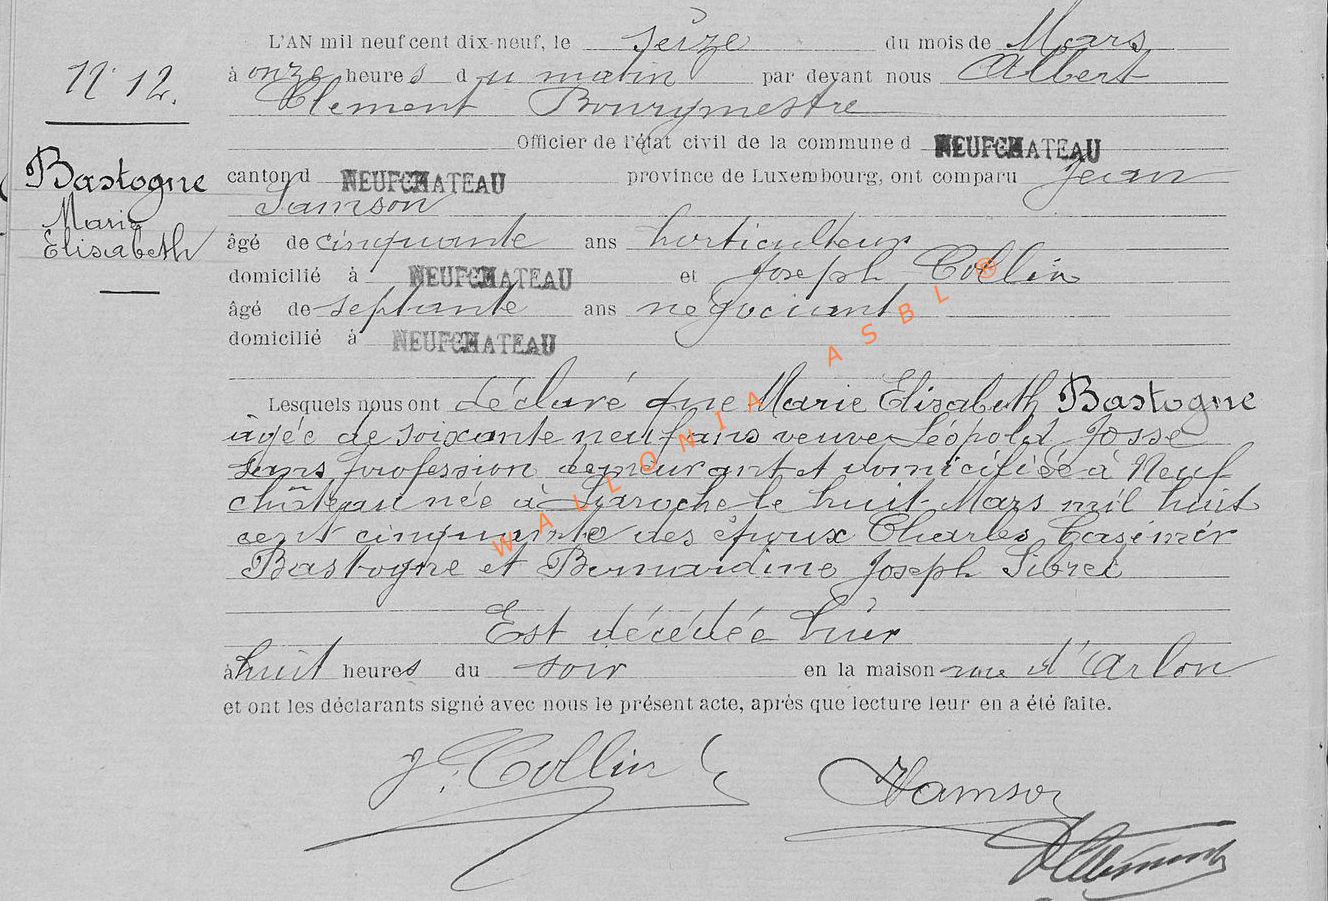 N° 12.
Bastogne
Marie
Elisabeth
L'AN mil neuf cent dix-neuf, le seize du mois de Mars
à onze heures du matin par devant nous Albert
Clement Bourgmestre
Officier de l'état civil de la commune d NEUFCHATEAU
canton d NEUFCHATEAU province de Luxembourg, ont comparu Jean
Samson
âgé de cinquante ans horticulteur
domicilié à NEUFCHATEAU et Joseph Collin
âgé de septante ans negociant
domicilié à NEUFCHATEAU
Lesquels nous ont déclaré que Marie Elisabeth Bastogne
agée de soixante neuf ans veuve Léopold Josse
sans profession demeurant et domiciliée à Neuf
château née à Laroche le huit Mars mil huit
cent cinquante des époux Charles Casimir
Bastogne et Bernardine Joseph Sibret
Est décédée hier
à huit heures du soir en la maison rue d'Arlon
et ont les déclarants signé avec nous le présent acte, après que lecture leur en a été faite.
J. Collin Samson
AClément
WALLONIA ASBL ®